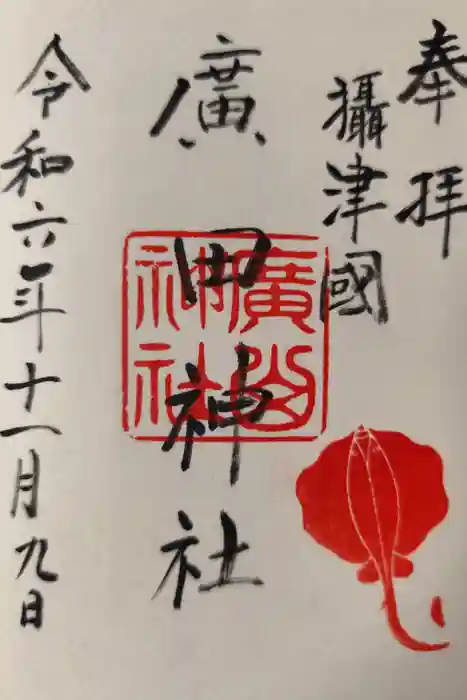 奉拝
攝津國
廣田神社
廣田神社
令和六年十一月九日